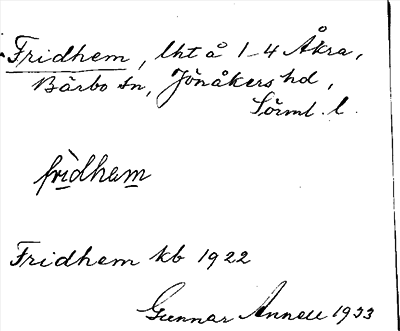 Fridhem, lht å 1-4 Åkra,
Bärbo sn, Jönåkers hd,
Sörml. l.
frìdhem
Fridhem kb 1922
Gunnar Annell 1933